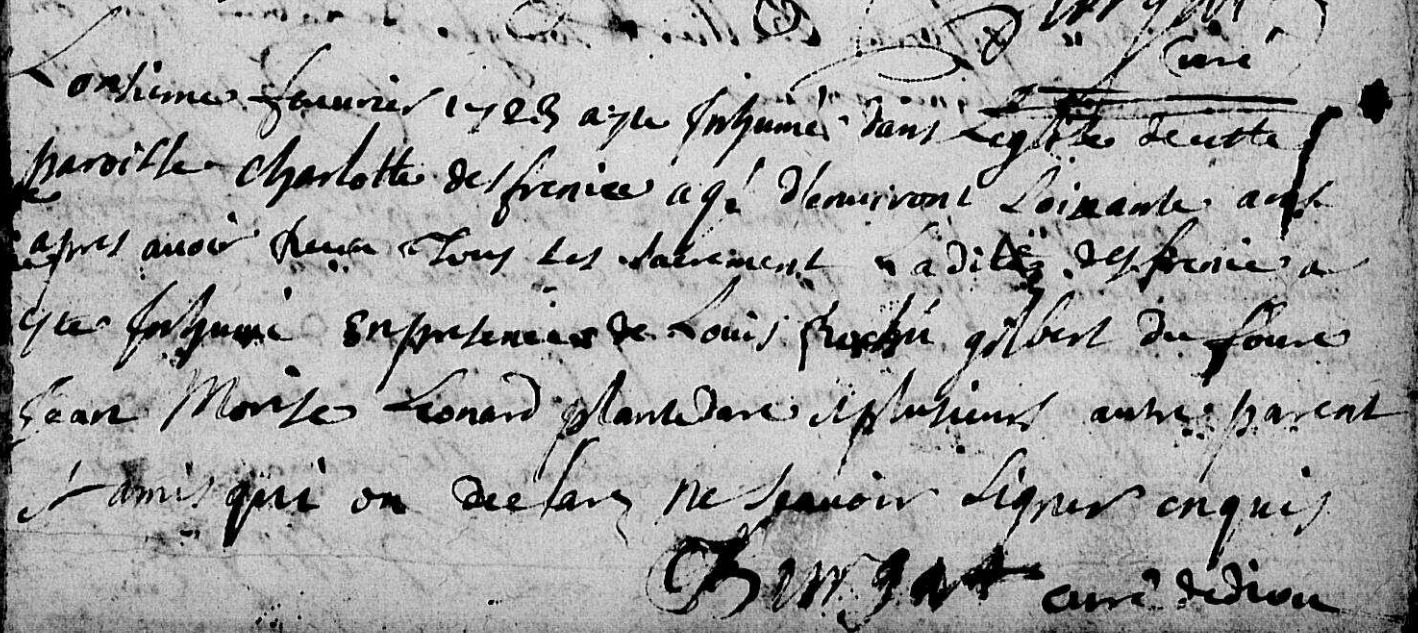 curé
Lonsieme feuurier 1723 a yte Inhumé dans Leglise de cette
paroisse charlotte desfrenice agé denuiront soixante ans
apres auoir Receu Tous les sacrement Ladite desfrenice a
yte Inhumé En presence de Louis gilbert du foure
Jean Morise Leonard plantedare et plusieurs autre parent
et amis qui on declaré ne scauoir signer enquis
curé dediou